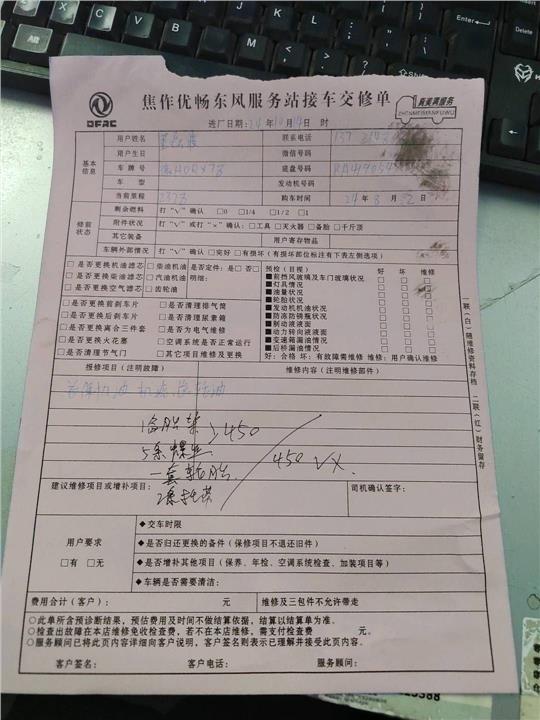 DFAC
焦作优畅东风服务站接车交修单
真美满服务
ZHENMEIMANFUWU
进厂日期: 24 年 10 月 14 日 时
基本信息
用户姓名
联系电话 137
用户生日
微信号码
车牌号
底盘号码
车 型
发动机号码
当前里程 2323
购车时间 24 年 8 月 2 日
修前状态
剩余燃料 打“√”确认 □0 □1/4 □1/2 □1
附件状况 打“√”或打“×”确认: □工具 □灭火器 □备胎 □千斤顶
其它装备
用户寄存物品
车辆外部情况 打“√”确认 □完好 □有损坏(有损坏部位标注有下表左侧选项)
□是否更换机油滤芯 □柴油机油 是否定件: 是□ 否□
□是否更换柴油滤芯 □汽油机油 明细:
□是否更换空气滤芯 □齿轮油
□是否更换前刹车片 □是否清理排气筒
□是否更换后刹车片 □是否清理尿素箱
□是否更换离合三件套 □是否为电气维修
□是否更换火花塞 □空调系统是否正常运行
□是否清理节气门 □其它项目维修及更换
预检(目视) 好 坏 维修
■前挡风玻璃及车门玻璃状况 □ □ □
■灯具情况 □ □ □
■油量状况 □ □ □
■轮胎状况 □ □ □
■发动机机油状况 □ □ □
■防冻防锈瓶状况 □ □ □
■制动液液面 □ □ □
■动力转向液液面 □ □ □
■变速箱漏油情况 □ □ □
■后桥漏油情况 □ □ □
好: 合格 坏: 有故障需维修 维修: 用户确认维修
报修项目(注明故障)
维修内容(注明维修部件)
450
5条
一套轮胎
450 VX.
建议维修项目或增补项目:
司机确认签字:
用户要求
□有 □无
◆交车时限
◆是否归还更换的备件(保修项目不退还旧件)
◆是否增补其他项目(保养、年检、空调系统检查、加装项目等)
◆车辆是否需要清洁:
费用合计(客户): 元
维修及三包件不允许带走
○此单所含预诊断结果,预估费用及时间不做结算依据,结算以结算单为准。
○检查出故障在本店维修免收检查费,若不在本店维修,需支付检查费 元。
○服务顾问已将此页内容详细向客户说明,客户签名则表示已理解并接受此页内容。
客户签名: 客户电话: 服务顾问:
一联(白)随维修资料存档 二联(红)财务留存
Enter
Shift
Ctrl